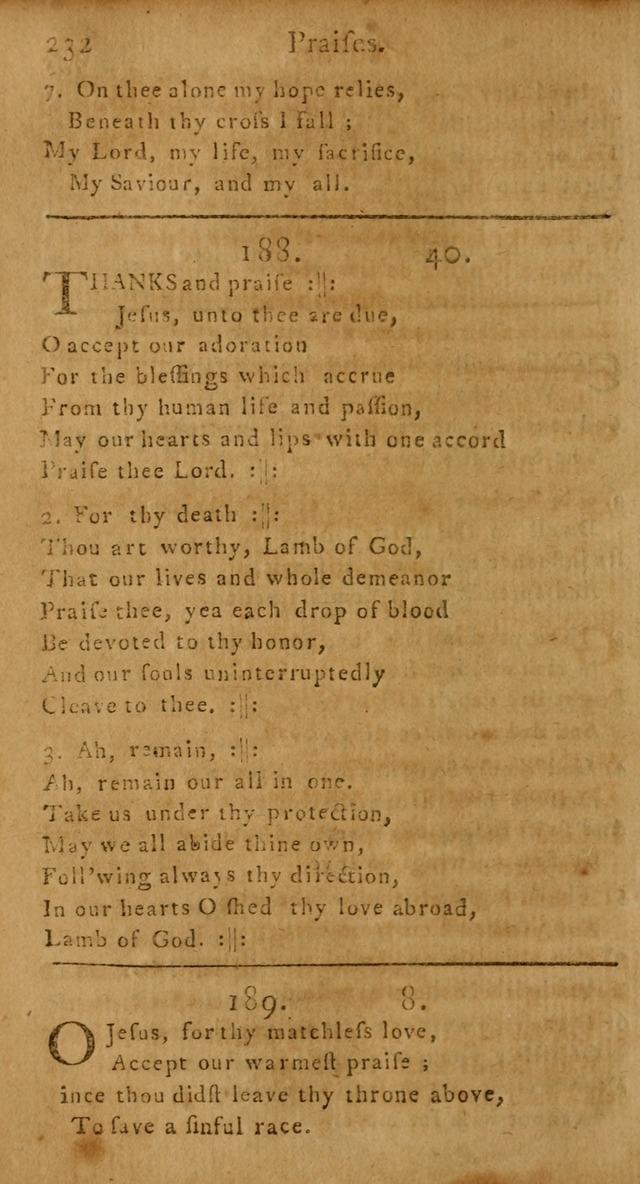 232 Praiſes.
7. On thee alone my hope relies,
Beneath thy croſs I fall ;
My Lord, my life, my ſacrifice,
My Saviour, and my all.
188. 40.
THANKS and praiſe :||:
Jeſus, unto thee are due,
O accept our adoration
For the bleſſings which accrue
From thy human life and paſſion,
May our hearts and lips with one accord
Praiſe thee Lord. :||:
2. For thy death :||:
Thou art worthy, Lamb of God,
That our lives and whole demeanor
Praiſe thee, yea each drop of blood
Be devoted to thy honor,
And our ſouls uninterruptedly
Cleave to thee. :||:
3. Ah, remain, :||:
Ah, remain our all in one.
Take us under thy protection,
May we all abide thine own,
Foll'wing always thy direction,
In our hearts O ſhed thy love abroad,
Lamb of God. :||:
189. 8.
O Jeſus, for thy matchleſs love,
Accept our warmeſt praiſe ;
ince thou didſt leave thy throne above,
To ſave a ſinful race.